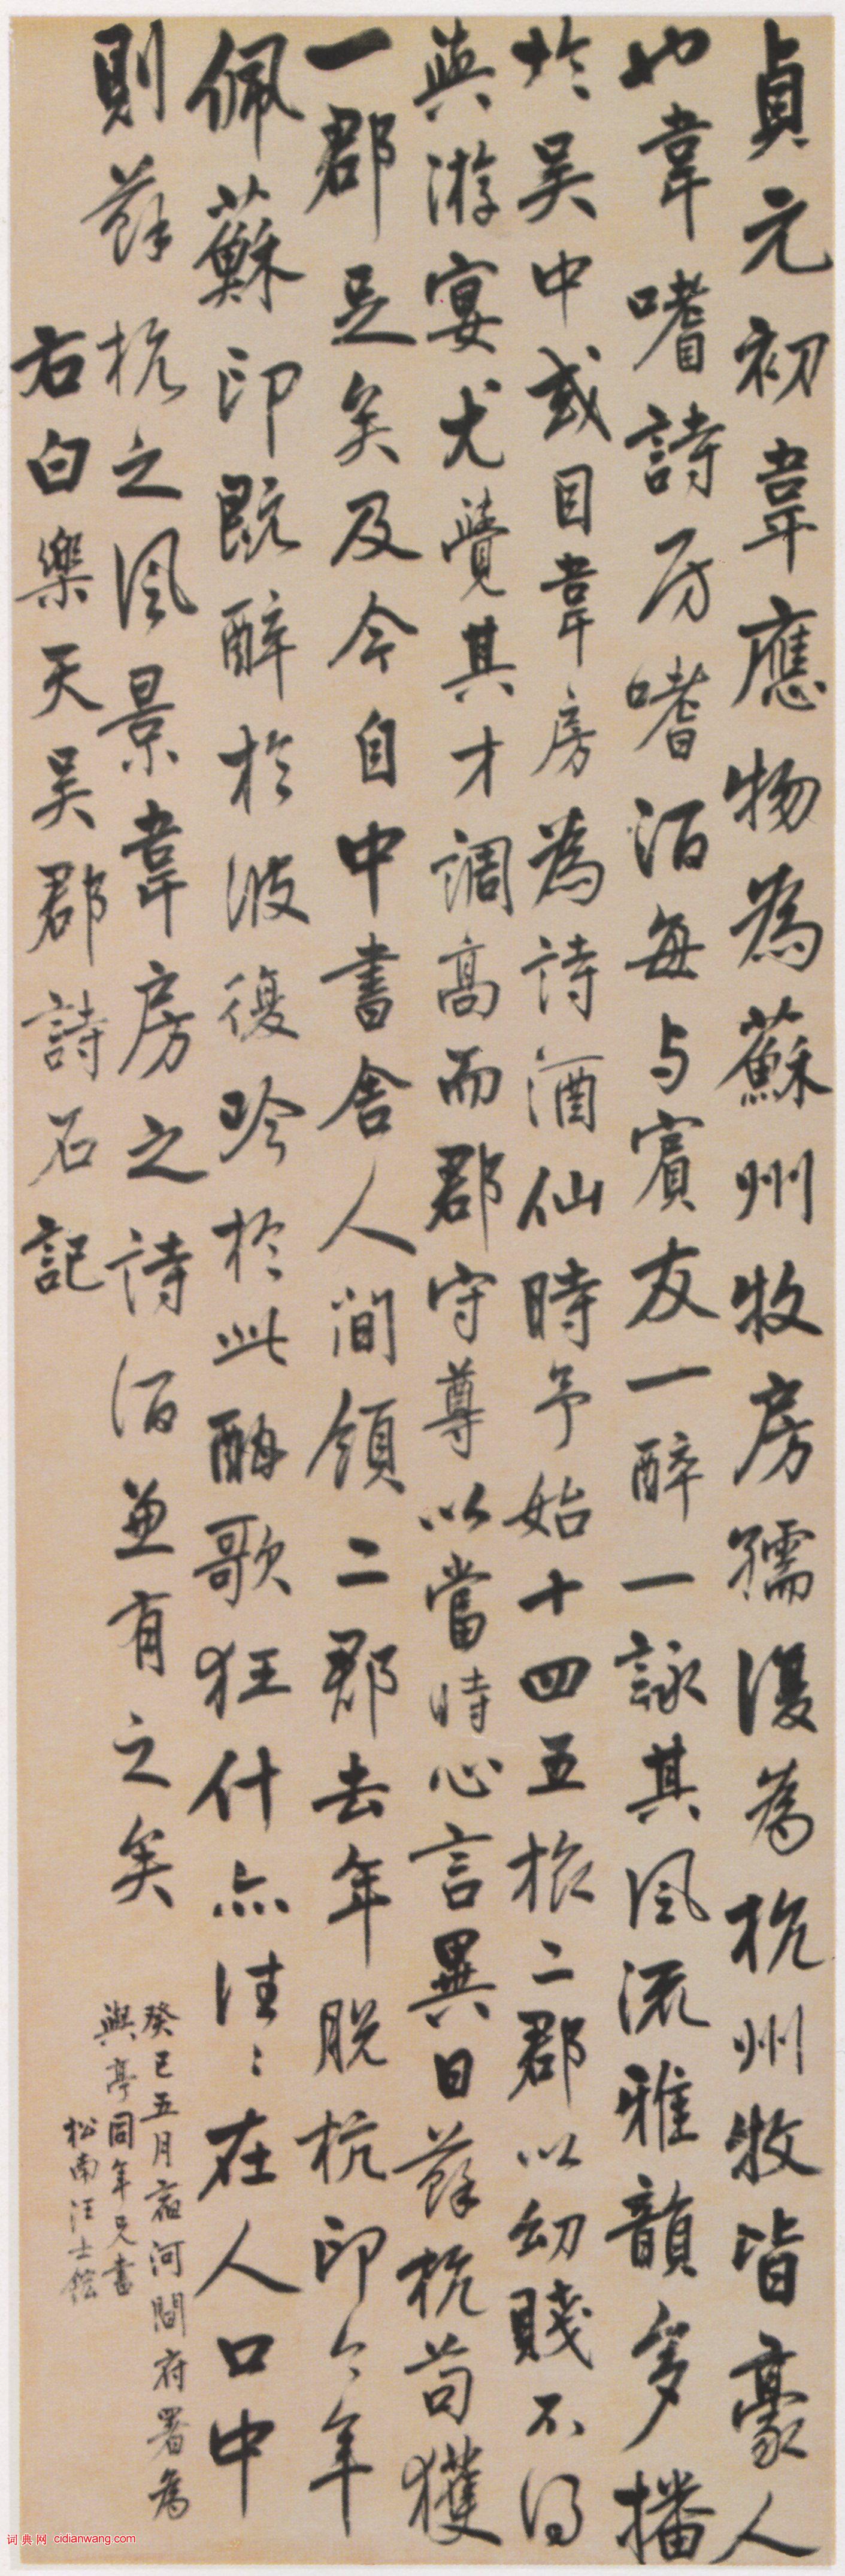 貞元初韋應物為蘇州牧房孺復為杭州牧皆豪人
也韋嗜詩房嗜酒每与賓友一醉一詠其風流雅韻多播
於吴中或目韋房為詩酒仙時予始十四五旅二郡以幼賤不得
與游宴尤覺其才調高而郡守尊以當時心言異日蘇杭苟獲
一郡足矣及今自中書舍人間領二郡去年脱杭印今年
佩蘇印既醉於彼復吟於此酣歌狂什亦往〻在人口中
則蘇杭之風景韋房之詩酒兼有之矣
右白樂天吴郡詩石記
癸巳五月寓河間府署為
與亭同年兄書
松南汪士鋐
词典网 cidianwang.com